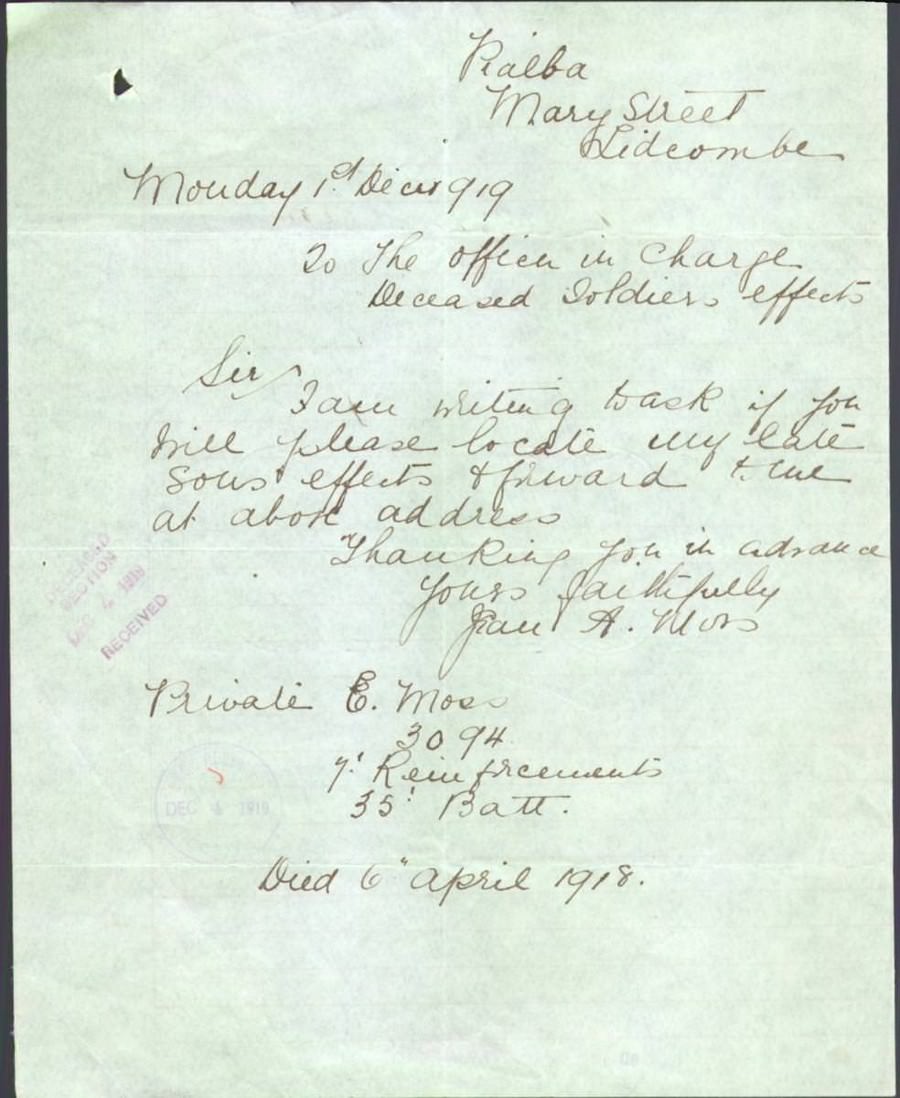 Pialba
Mary Street
Lidcombe
Monday 1st Decr 1919
To The Officer in Charge
Deceased Soldiers effects
Sir
I am writing to ask if you
will please locate my late
Sons effects & forward to me
at above address
Thanking you in advance
Yours faithfully
Jean A. Moss
RECEIVED
SECTION
DEC 4 1919
RECEIVED
Private E. Moss
3094
7' Reinforcements
35' Batt.
DEC 4 1919
Died 6" April 1918.